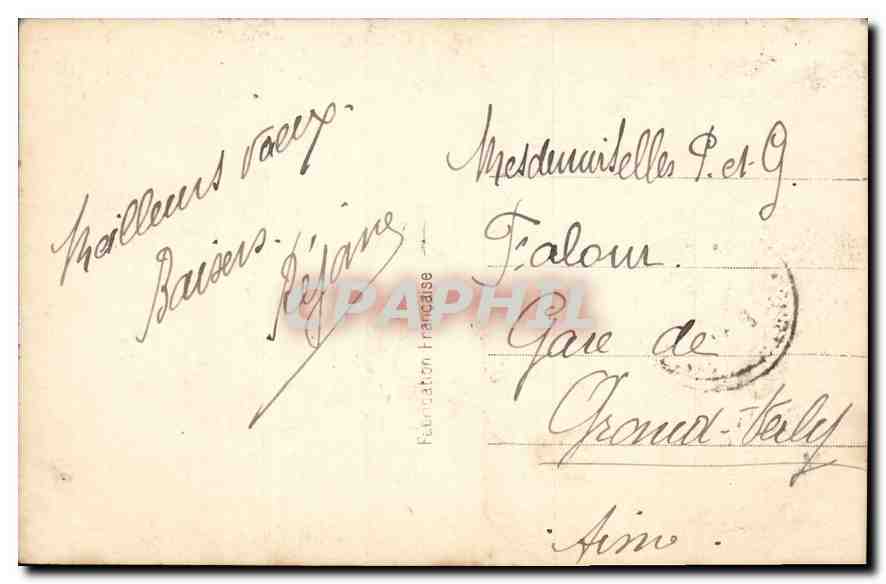 Meilleurs vœux.
Baisers.
Réjane
Fabrication Française
Mesdemoiselles P. et G
Falour.
Gare de
Grand-Verly
Aisne.
CPAPHIL